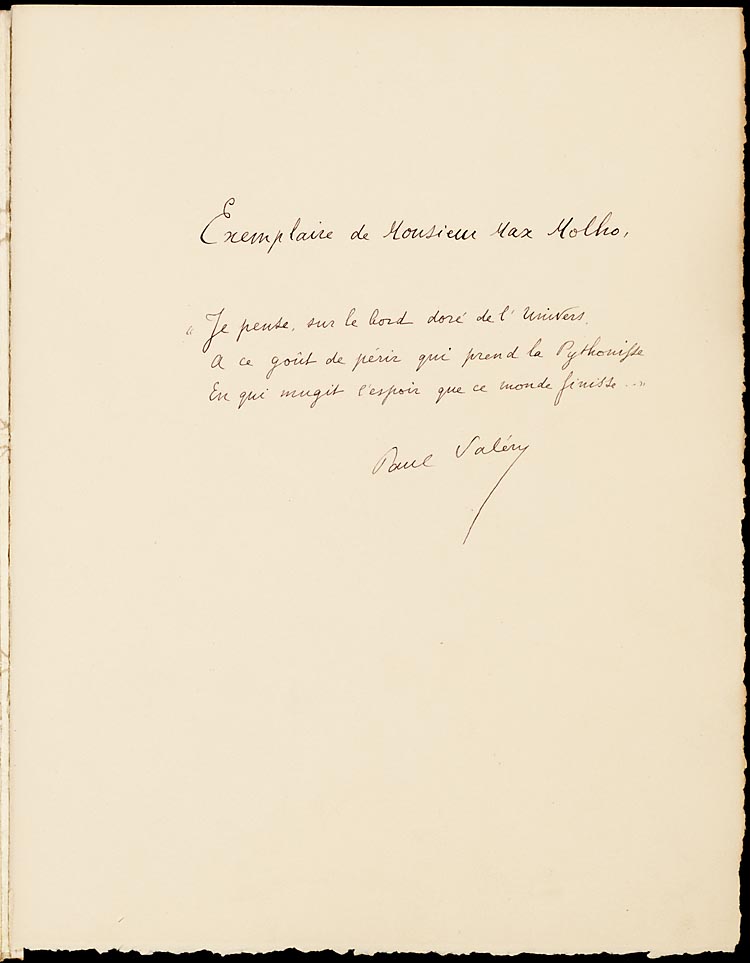 Exemplaire de Monsieur Max Molho,
« Je pense, sur le bord doré de l'univers,
A ce goût de périr qui prend la Pythonisse
En qui mugit l'espoir que ce monde finisse... »
Paul Valéry